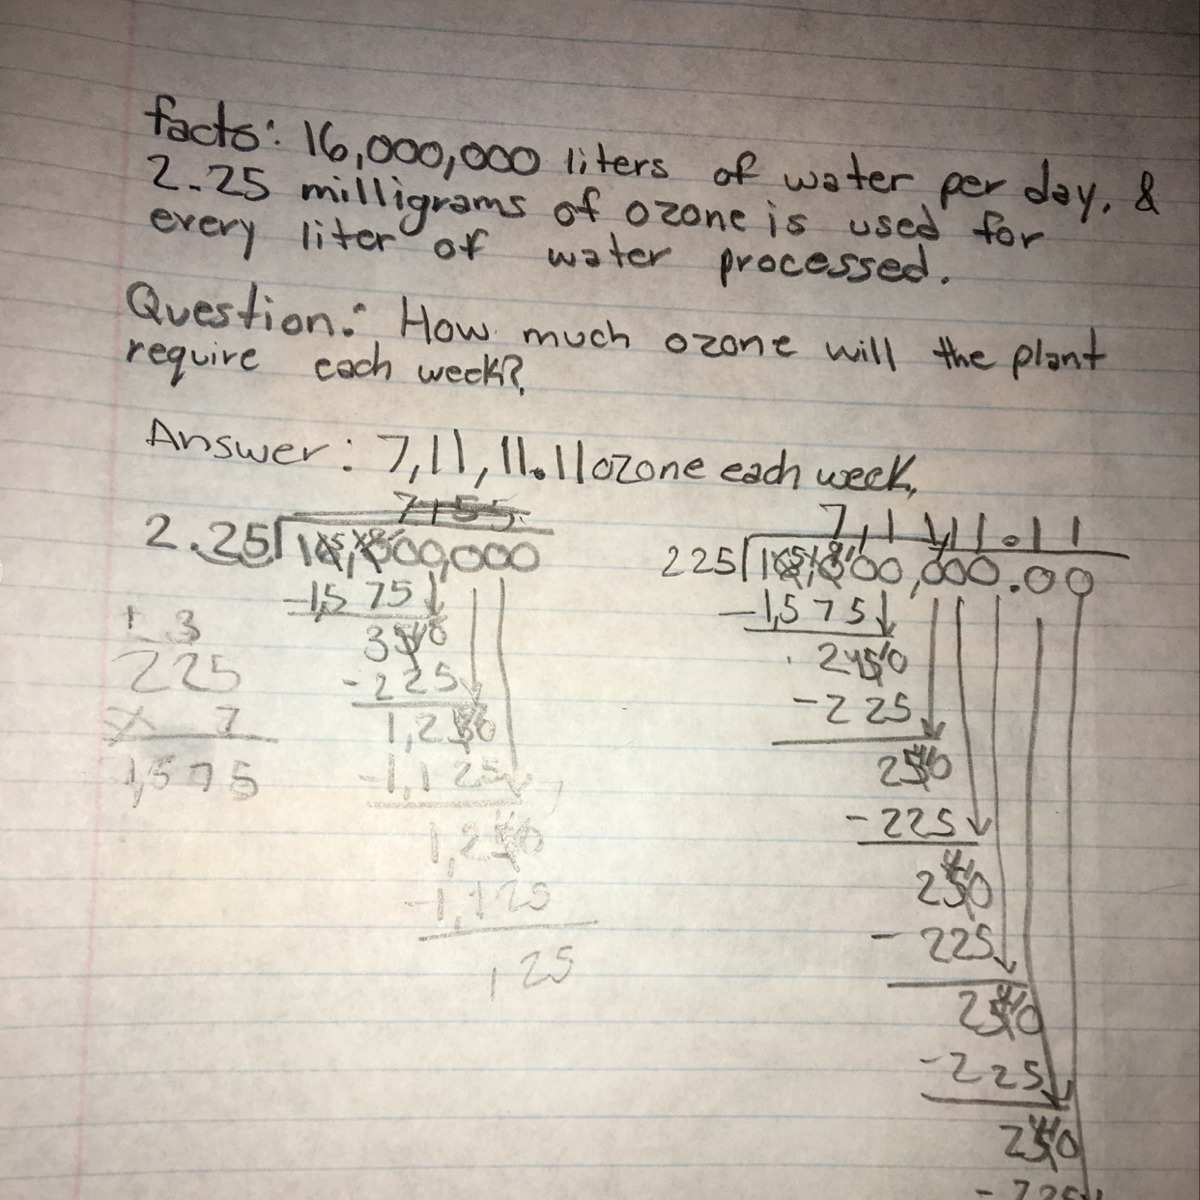 facts: 16,000,000 liters of water per day, &
2.25 milligrams of ozone is used for
every liter of water processed.
Question: How much ozone will the plant
require each week?
Answer: 7,11,11.11 ozone each week,
7155.
2.25
00,000
-1,575
-225
-1,125
-1,125
25
+ 3
225
x 7
1,575
7,1 1,11.11
225
00,000.00
-1,575
-225
-225
-225
-225